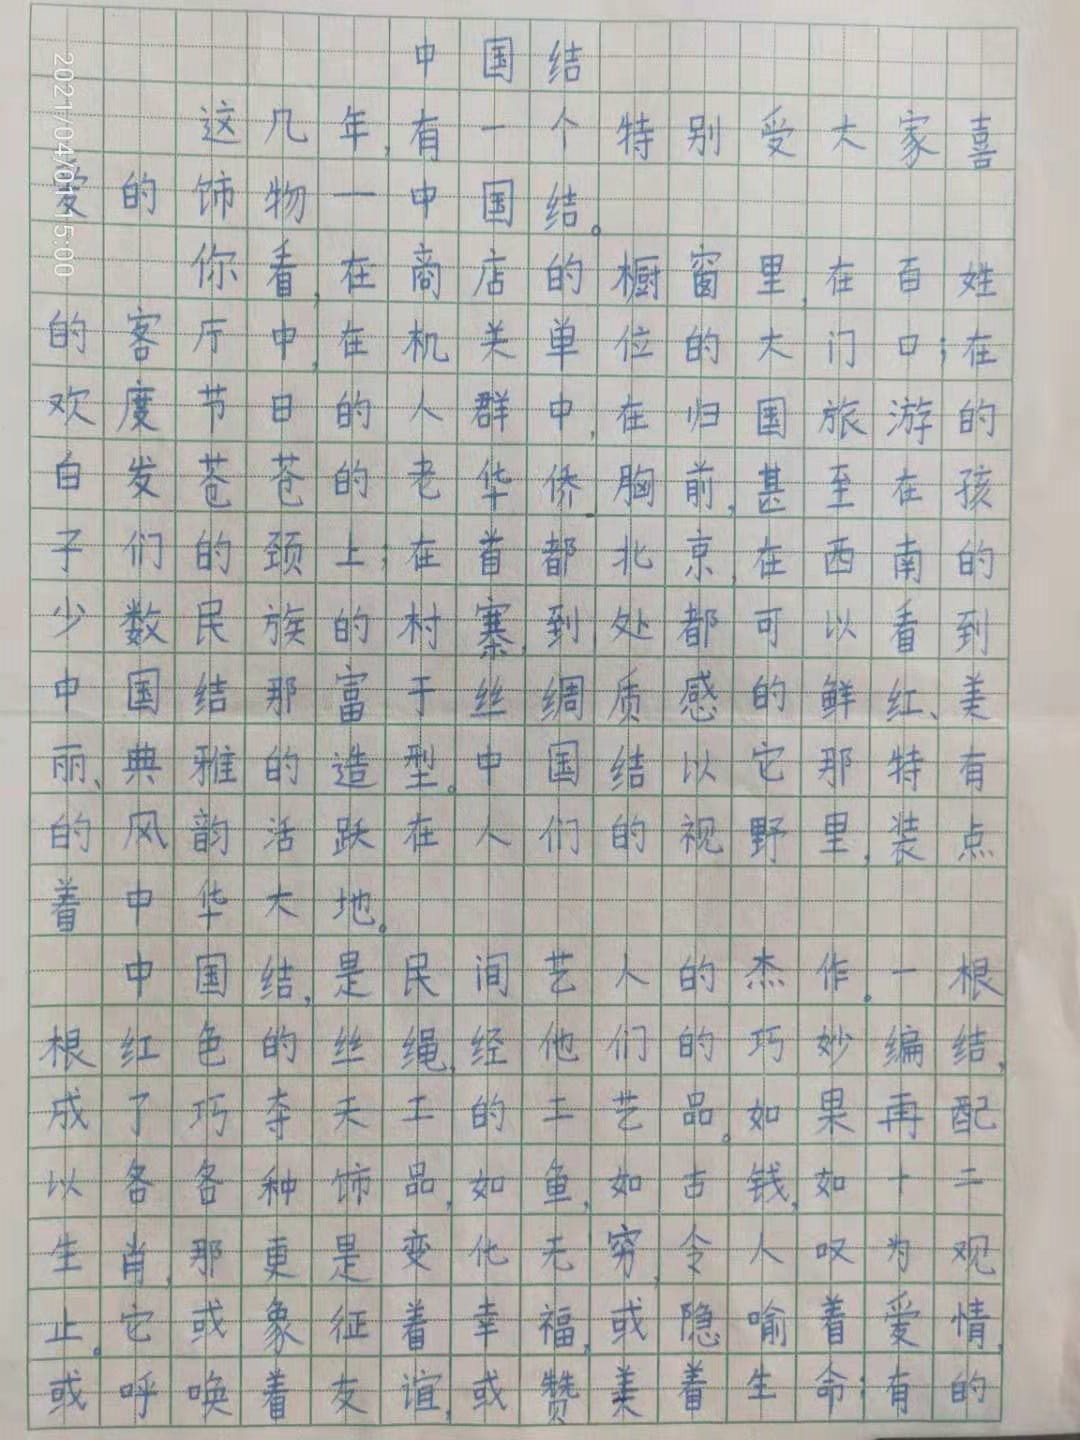 中国结
这几年,有一个特别受大家喜
爱的饰物一中国结。
你看,在商店的橱窗里,在百姓
的客厅中,在机关单位的大门口;在
欢度节日的人群中,在归国旅游的
白发苍苍的老华侨胸前,甚至在孩
子们的颈上;在首都北京,在西南的
少数民族的村寨,到处都可以看到
中国结那富于丝绸质感的鲜红、美
丽、典雅的造型。中国结以它那特有
的风韵活跃在人们的视野里,装点
着中华大地。
中国结,是民间艺人的杰作。一根
根红色的丝绳,经他们的巧妙编结,
成了巧夺天工的工艺品。如果再配
以各各种饰品,如鱼,如古钱,如十二
生肖,那更是变化无穷,令人叹为观
止。它或象征着幸福,或隐喻着爱情,
或呼唤着友谊,或赞美着生命;有的
2021/04/01 15:00